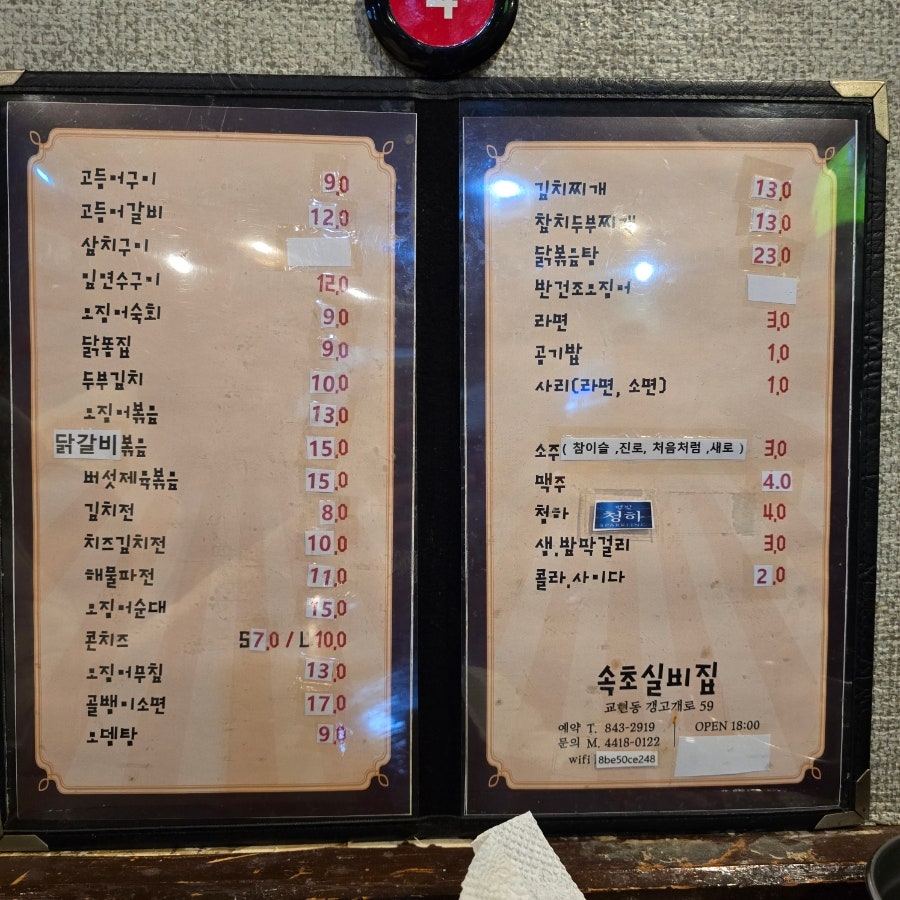 4
고등어구이 9.0
고등어갈비 12.0
삼치구이
임연수구이 12.0
오징어숙회 9.0
닭똥집 9.0
두부김치 10.0
오징어볶음 13.0
닭갈비볶음 15.0
버섯제육볶음 15.0
김치전 8.0
치즈김치전 10.0
해물파전 11.0
오징어순대 15.0
콘치즈 S7.0 / L10.0
오징어무침 13.0
골뱅이소면 17.0
오뎅탕 9.0
김치찌개 13.0
참치두부찌개 13.0
닭볶음탕 23.0
반건조오징어
라면 3.0
공기밥 1.0
사리(라면, 소면) 1.0
소주( 참이슬 ,진로, 처음처럼 ,새로 ) 3.0
맥주 4.0
청하 청하 SPARKLING 4.0
생.밤막걸리 3.0
콜라.사이다 2.0
속초실비집
교현동 갱고개로 59
예약 T. 843-2919 OPEN 18:00
문의 M. 4418-0122
wifi 8be50ce248